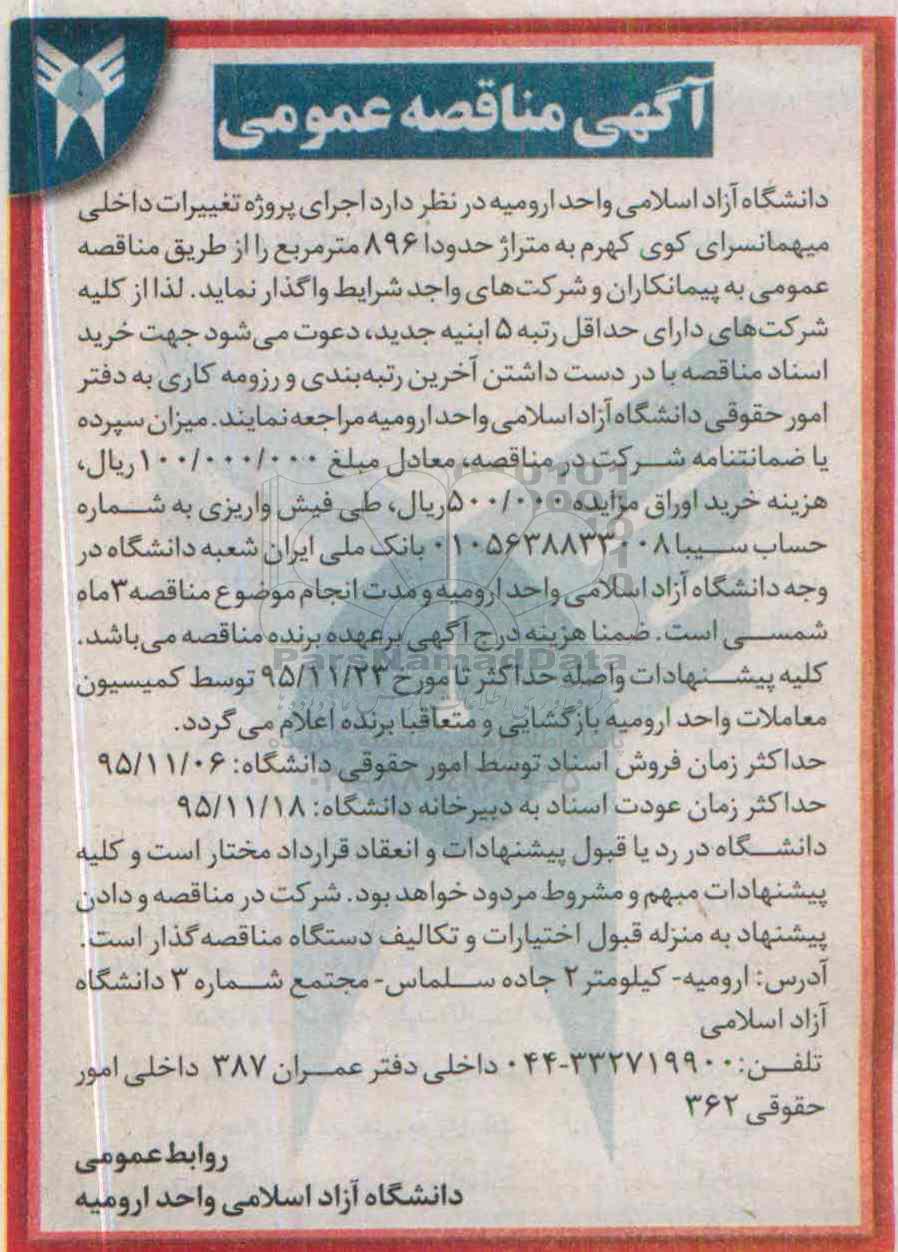 آگهی مناقصه عمومی
دانشگاه آزاد اسلامی واحد ارومیه در نظر دارد اجرای پروژه تغییرات داخلی
میهمانسرای کوی کهرم به متراژ حدودا ۸۹۶ مترمربع را از طریق مناقصه
عمومی به پیمانکاران و شرکت‌های واجد شرایط واگذار نماید. لذا از کلیه
شرکت‌های دارای حداقل رتبه ۵ ابنیه جدید، دعوت می‌شود جهت خرید
اسناد مناقصه با در دست داشتن آخرین رتبه‌بندی و رزومه کاری به دفتر
امور حقوقی دانشگاه آزاد اسلامی واحد ارومیه مراجعه نمایند. میزان سپرده
یا ضمانتنامه شرکت در مناقصه، معادل مبلغ ۱۰۰/۰۰۰/۰۰۰ ریال،
هزینه خرید اوراق مزایده ۵۰۰/۰۰۰ ریال، طی فیش واریزی به شماره
حساب سیبا ۰۱۰۵۶۳۸۸۳۳۰۰۸ بانک ملی ایران شعبه دانشگاه در
وجه دانشگاه آزاد اسلامی واحد ارومیه و مدت انجام موضوع مناقصه ۳ ماه
شمسی است. ضمنا هزینه درج آگهی برعهده برنده مناقصه می‌باشد.
ParsNamadData
کلیه پیشنهادات واصله حداکثر تا مورخ ۹۵/۱۱/۲۳ توسط کمیسیون
معاملات واحد ارومیه بازگشایی و متعاقبا برنده اعلام می گردد.
حداکثر زمان فروش اسناد توسط امور حقوقی دانشگاه: ۹۵/۱۱/۰۶
حداکثر زمان عودت اسناد به دبیرخانه دانشگاه: ۹۵/۱۱/۱۸
دانشگاه در رد یا قبول پیشنهادات و انعقاد قرارداد مختار است و کلیه
پیشنهادات مبهم و مشروط مردود خواهد بود. شرکت در مناقصه و دادن
پیشنهاد به منزله قبول اختیارات و تکالیف دستگاه مناقصه گذار است.
آدرس: ارومیه- کیلومتر ۲ جاده سلماس- مجتمع شماره ۳ دانشگاه
آزاد اسلامی
تلفن: ۰۴۴-۳۳۲۷۱۹۹۰۰ داخلی دفتر عمران ۳۸۷ داخلی امور
حقوقی ۳۶۲
روابط عمومی
دانشگاه آزاد اسلامی واحد ارومیه